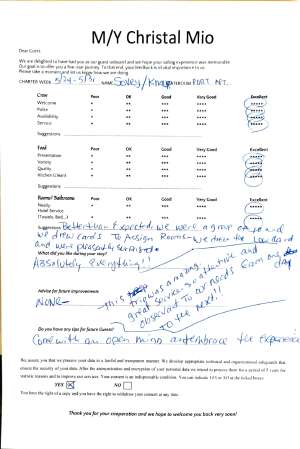 M/Y Christal Mio
Dear Guest,
We are delighted to have had you as our guest onboard and we hope your sailing experience was memorable.
Our goal is to offer you a five star journey. To that end, your feedback is of vital importance to us.
Please take a moment and let us know how we are doing.
CHARTER WEEK: 5/24-5/31 NAME: ROOM: PORT AFT.
Crew Poor OK Good Very Good Excellent
Welcome * ** *** **** *****
Polite * ** *** **** *****
Availability * ** *** **** *****
Service * ** *** **** *****
Suggestions:
Food Poor OK Good Very Good Excellent
Presentation * ** *** **** *****
Variety * ** *** **** *****
Quality * ** *** **** *****
Kitchen (clean) * ** *** **** *****
Suggestions:
Room/ Bathrooms Poor OK Good Very Good Excellent
Ready * ** *** **** *****
Hotel Service * ** *** **** *****
(Towels, Bed...) * ** *** **** *****
Suggestions: Better than Expected, we were a group of and
we drew cards To Assign Rooms - we drew the low card
and were pleasantly surprised.
What did you like during your stay?
Absolutely everything!!
Advice for future improvements
NONE - This trip was amazing.
great service so attentive and
observant To our needs from one day
To the next!!
Do you have any tips for future Guests?
Come with an open mind and embrace the experience
We assure you that we process your data in a lawful and transparent manner. We develop appropriate technical and organizational safeguards that
ensure the security of your data. After the anonymization and encryption of your personal data we intend to process them for a period of 5 years for
statistic reasons and to improve our services. Your consent is an indispensable condition. You can indicate YES or NO at the ticked boxes:
YES NO
You have the right of a copy and you have the right to withdraw your consent at any date.
Thank you for your cooperation and we hope to welcome you back very soon!